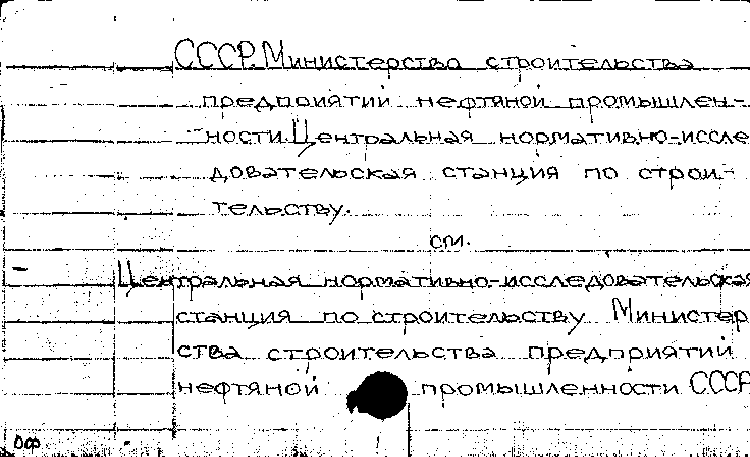 СССР. Министерство строительства
предприятий нефтяной промышлен-
ности. Центральная нормативно-иссле
довательская станция по строи-
тельству.
см.
Центральная нормативно-исследовательская
станция по строительству Министер
ства строительства предприятий
нефтяной промышленности СССР